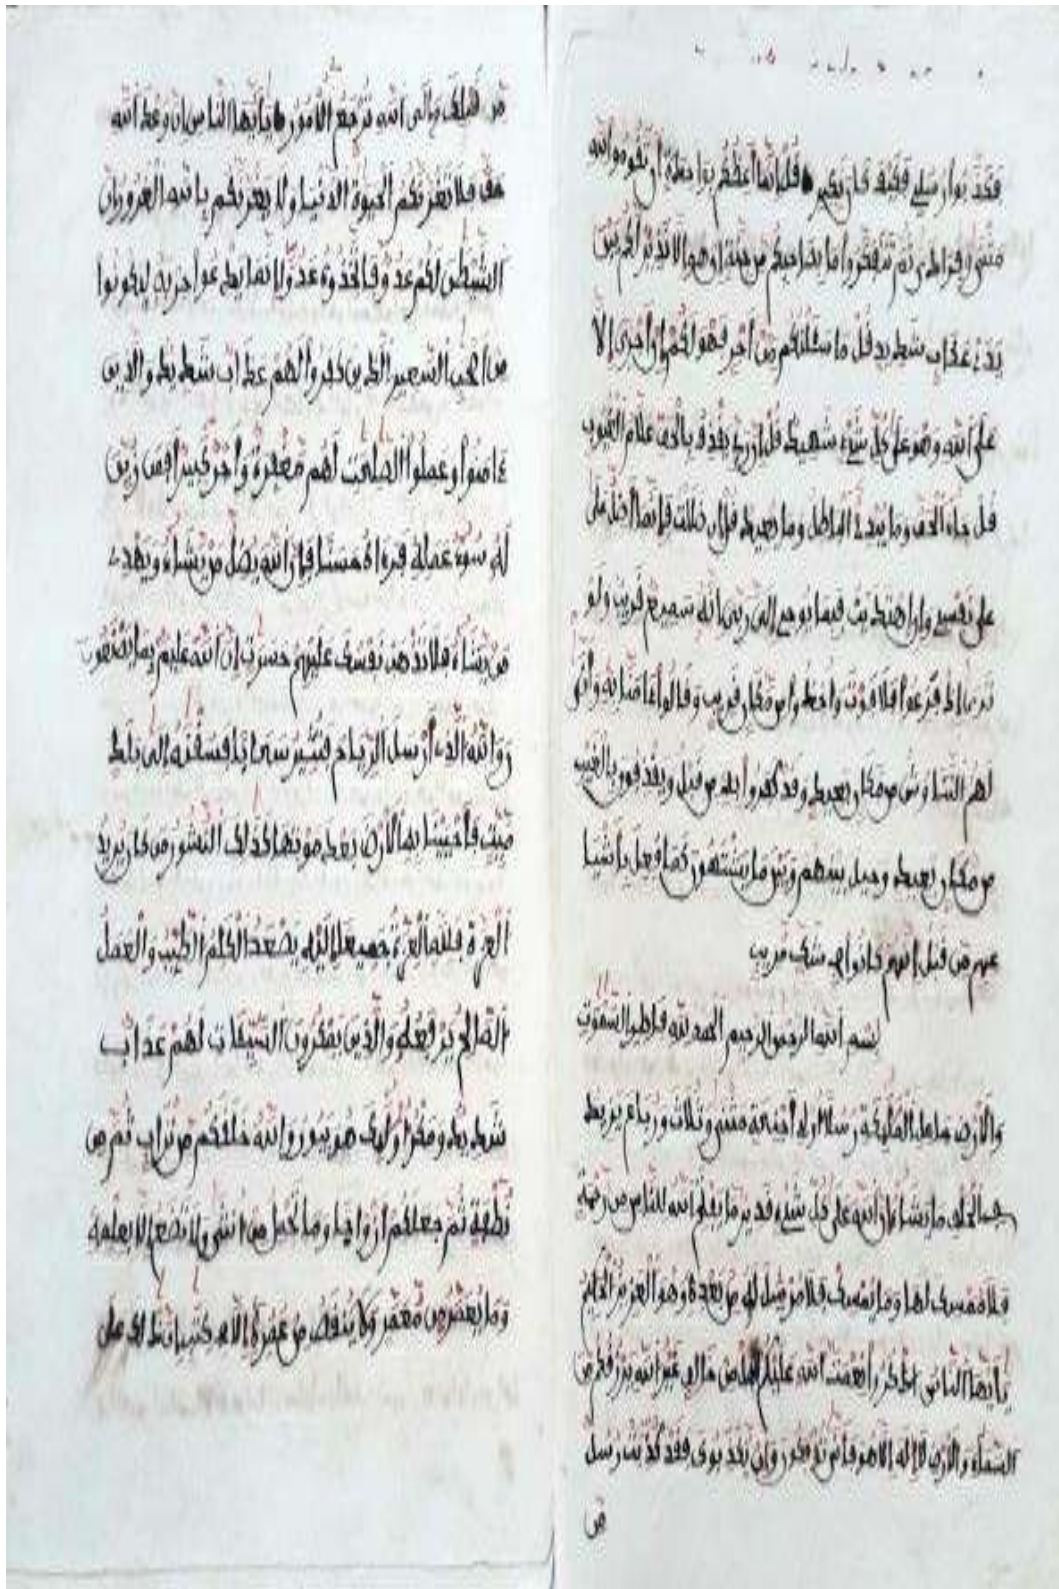 فكذبوا رسلي فكيف كان نكير قل إنما أعظكم بواحدة أن تقوموا لله
مثنى وفرادى ثم تتفكروا ما بصاحبكم من جنة إن هو إلا نذير لكم بين
يدي عذاب شديد قل ما سألتكم من أجر فهو لكم إن أجري إلا
على الله وهو على كل شيء شهيد قل إن ربي يقذف بالحق علام الغيوب
قل جاء الحق وما يبدئ الباطل وما يعيد قل إن ضللت فإنما أضل على
على نفسي وإن اهتديت فبما يوحي إلي ربي إنه سميع قريب ولو
ترى إذ فزعوا فلا فوت وأخذوا من مكان قريب وقالوا ءامنا به وأنى
لهم التناوش من مكان بعيد وقد كفروا به من قبل ويقذفون بالغيب
من مكان بعيد وحيل بينهم وبين ما يشتهون كما فعل بأشيا
عهم من قبل إنهم كانوا في شك مريب
بسم الله الرحمن الرحيم الحمد لله فاطر السموت
والأرض جاعل الملئكة رسلا أولي أجنحة مثنى وثلاث ورباع يزيد
في الخلق ما يشاء إن الله على كل شيء قدير ما يفتح الله للناس من رحمة
فلا ممسك لها وما يمسك فلا مرسل له من بعده وهو العزيز الحكيم
يأيها الناس اذكروا نعمت الله عليكم هل من خالق غير الله يرزقكم من
السماء والأرض لا إله إلا هو فأنى تؤفكون وإن يكذبوك فقد كذبت رسل
من
من قبلك وإلى الله ترجع الأمور يأيها الناس إن وعد الله
حق فلا تغرنكم الحيوة الدنيا ولا يغرنكم بالله الغرور إن
الشيطن لكم عدو فاتخذوه عدوا إنما يدعوا حزبه ليكونوا
من أصحب السعير الذين كفروا لهم عذاب شديد والذين
ءامنوا وعملوا الصلحت لهم مغفرة وأجر كبير أفمن زين
له سوء عمله فرءاه حسنا فإن الله يضل من يشاء ويهدي
من يشاء فلا تذهب نفسك عليهم حسرت إن الله عليم بما يصنعون
والله الذي أرسل الرياح فتثير سحابا فسقنه إلى بلد
ميت فأحيينا به الأرض بعد موتها كذلك النشور من كان يريد
العزة فلله العزة جميعا إليه يصعد الكلم الطيب والعمل
الصالح يرفعه والذين يمكرون السيئات لهم عذاب
شديد ومكر أولئك هو يبور والله خلقكم من تراب ثم من
نطفة ثم جعلكم أزواجا وما تحمل من أنثى ولا تضع إلا بعلمه
وما يعمر من معمر ولا ينقص من عمره إلا في كتب إن ذلك على